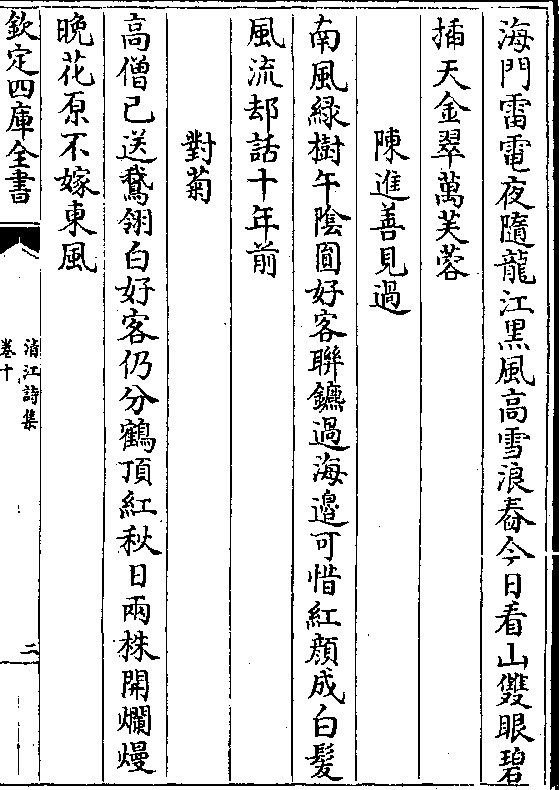 海門雷電夜隨龍江黒風高雪浪舂今日看山雙眼碧
揷天金翠萬芙蓉
陳進善見過
南風緑樹午陰圎好客聯鑣過海邉可惜紅顔成白髪
風流却話十年前
對菊
高僧已送鵞翎白好客仍分鶴頂紅秋日兩株開爛熳
晚花原不嫁東風
欽定四庫全書
清江詩集
卷十
二